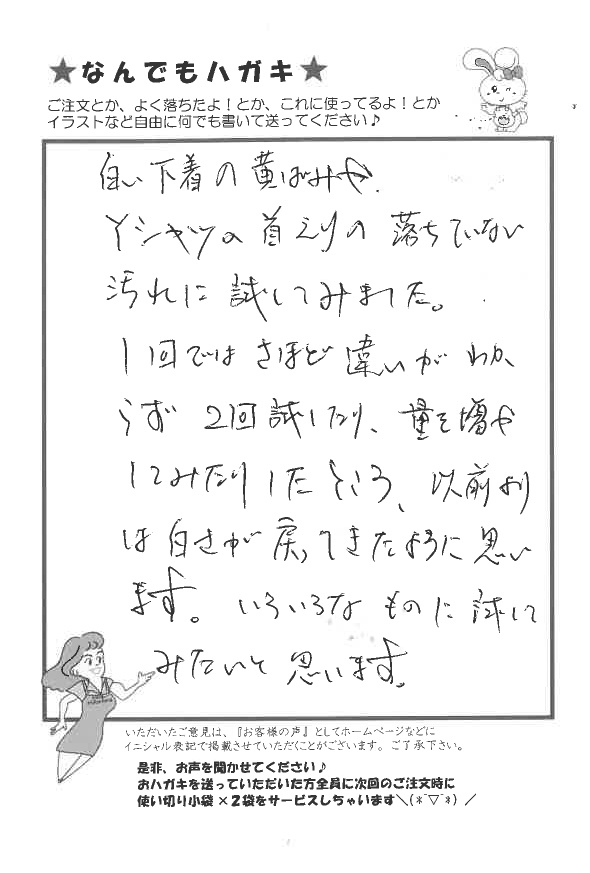 ★なんでもハガキ★
ご注文とか、よく落ちたよ！とか、これに使ってるよ！とか
イラストなど自由に何でも書いて送ってください♪
白い下着の黄ばみや
Yシャツの首えりの落ちていない
汚れに試してみました。
1回ではさほど違いがわか
らず2回試したり、量を増や
してみたりしたところ、以前より
は白さが戻ってきたように思い
ます。いろいろなものに試して
みたいと思います。
いただいたご意見は、『お客様の声』としてホームページなどに
イニシャル表記で掲載させていただくことがございます。ご了承下さい。
是非、お声を聞かせてください♪
おハガキを送っていただいた方全員に次回のご注文時に
使い切り小袋×2袋をサービスしちゃいます＼(*¯▽¯*)／